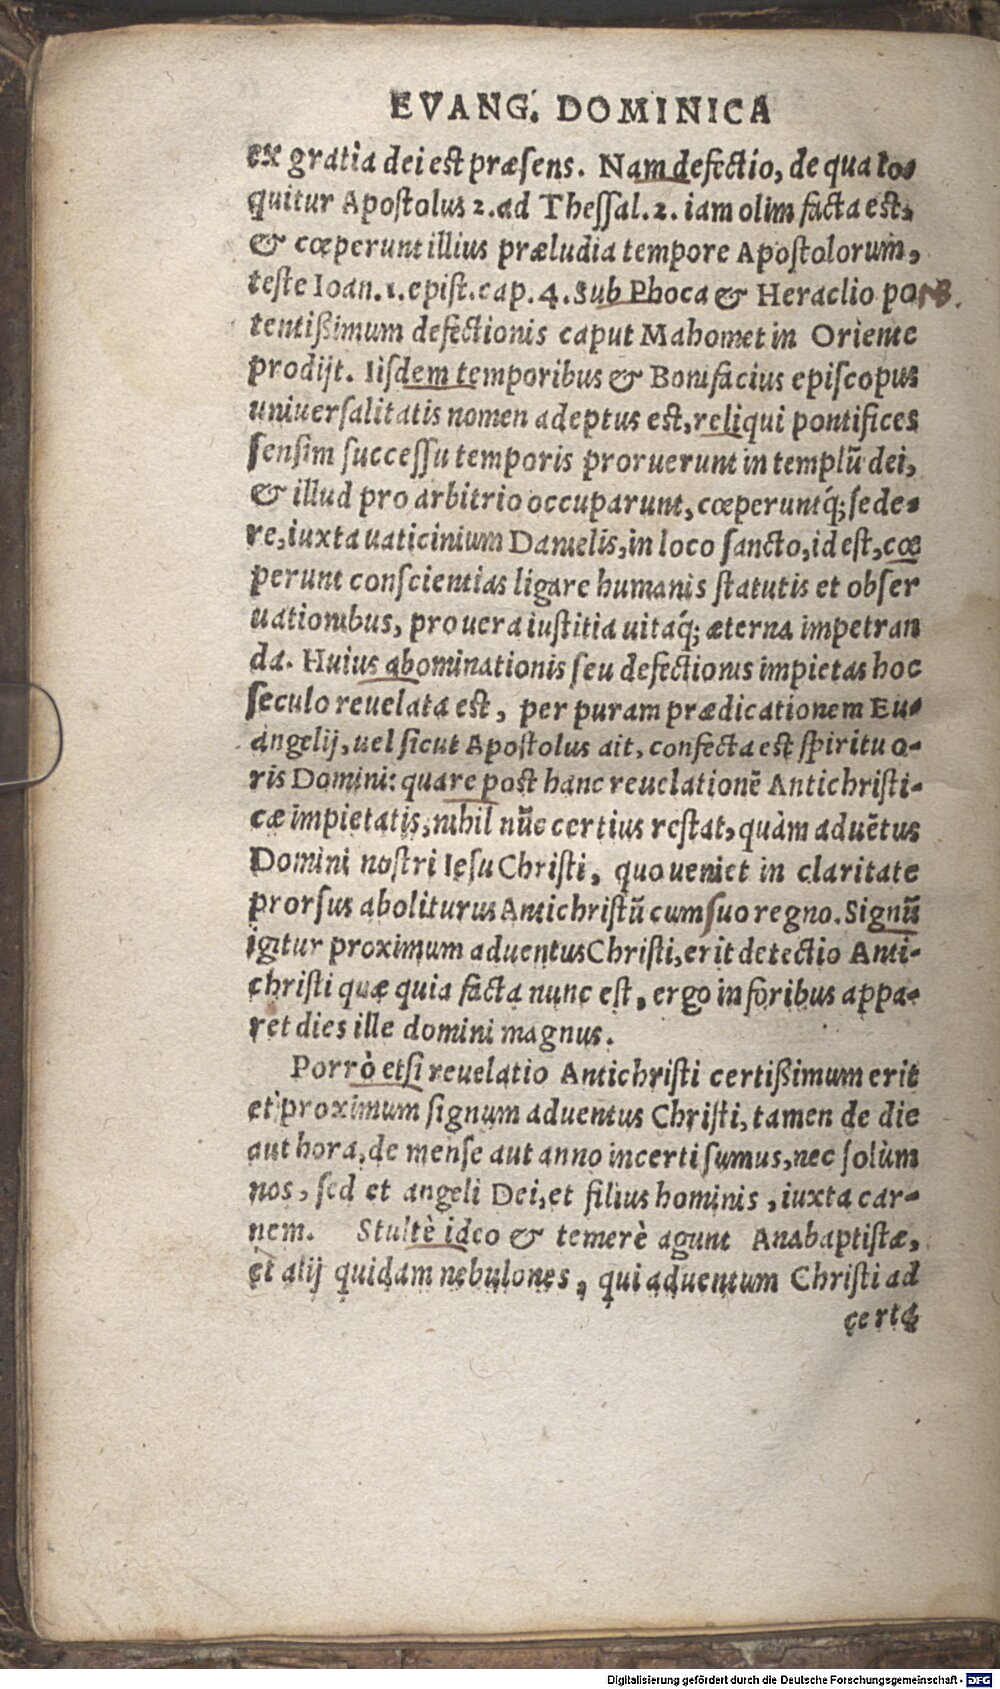 EVANG. DOMINICA
ex gratia dei est præsens. Nam defectio, de qua lo-
quitur Apostolus 2. ad Thessal. 2. iam olim facta est,
& cœperunt illius præludia tempore Apostolorum,
teste Ioan. 1. epist. cap. 4. Sub Phoca & Heraclio po NB.
tentißimum defectionis caput Mahomet in Oriente
prodijt. Iisdem temporibus & Bonifacius episcopus
uniuersalitatis nomen adeptus est, reliqui pontifices
sensim successu temporis proruerunt in templũ dei,
& illud pro arbitrio occuparunt, cœperuntq́; sede-
re, iuxta uaticinium Danielis, in loco sancto, id est, cœ
perunt conscientias ligare humanis statutis et obser
uationibus, pro uera iustitia uitaq́; æterna impetran
da. Huius abominationis seu defectionis impietas hoc
seculo reuelata est, per puram prædicationem Eu-
angelij, uel sicut Apostolus ait, confecta est spiritu o-
ris Domini: quare post hanc reuelationẽ Antichristi-
cæ impietatis, nihil nũc certius restat, quàm aduẽtus
Domini nostri Iesu Christi, quo ueniet in claritate
prorsus aboliturus Antichristũ cum suo regno. Signũ
igitur proximum aduentus Christi, erit detectio Anti-
christi quæ quia facta nunc est, ergo in foribus appa-
ret dies ille domini magnus.
Porrò etsi reuelatio Antichristi certißimum erit
et proximum signum aduentus Christi, tamen de die
aut hora, de mense aut anno incerti sumus, nec solùm
nos, sed et angeli Dei, et filius hominis, iuxta car-
nem. Stultè ideo & temerè agunt Anabaptistæ,
et alij quidam nebulones, qui aduentum Christi ad
certa
Digitalisierung gefördert durch die Deutsche Forschungsgemeinschaft - DFG